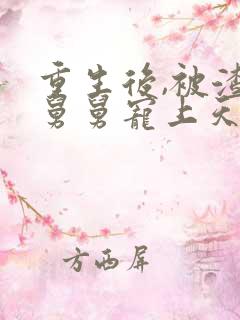 重生後,被渣
舅舅寵上天
方西屏